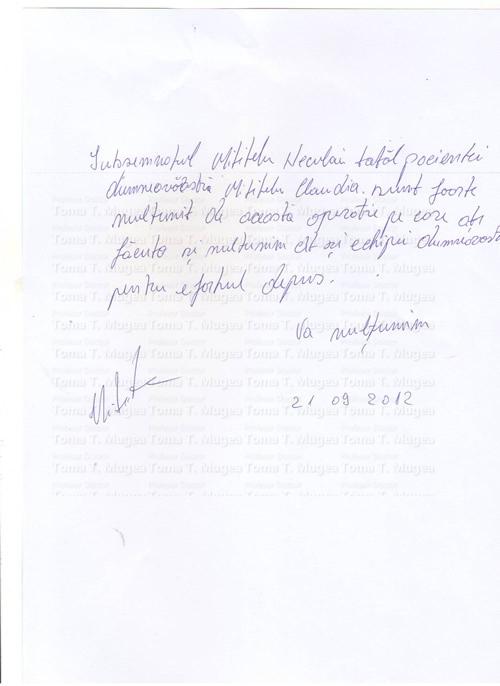 Subsemnatul Mititelu Neculai tatăl pacientei
dumneavoastră Mititelu Claudia. sunt foarte
multumit de această operatie pe care ați
făcuto și multumim cît și echipei dumneavoastră
pentru efortul depus.
Va mulțumim
21 09 2012
Profesor Doctor
Toma T. Mugea Toma T. Mugea Toma T. Mugea Toma T. Mugea